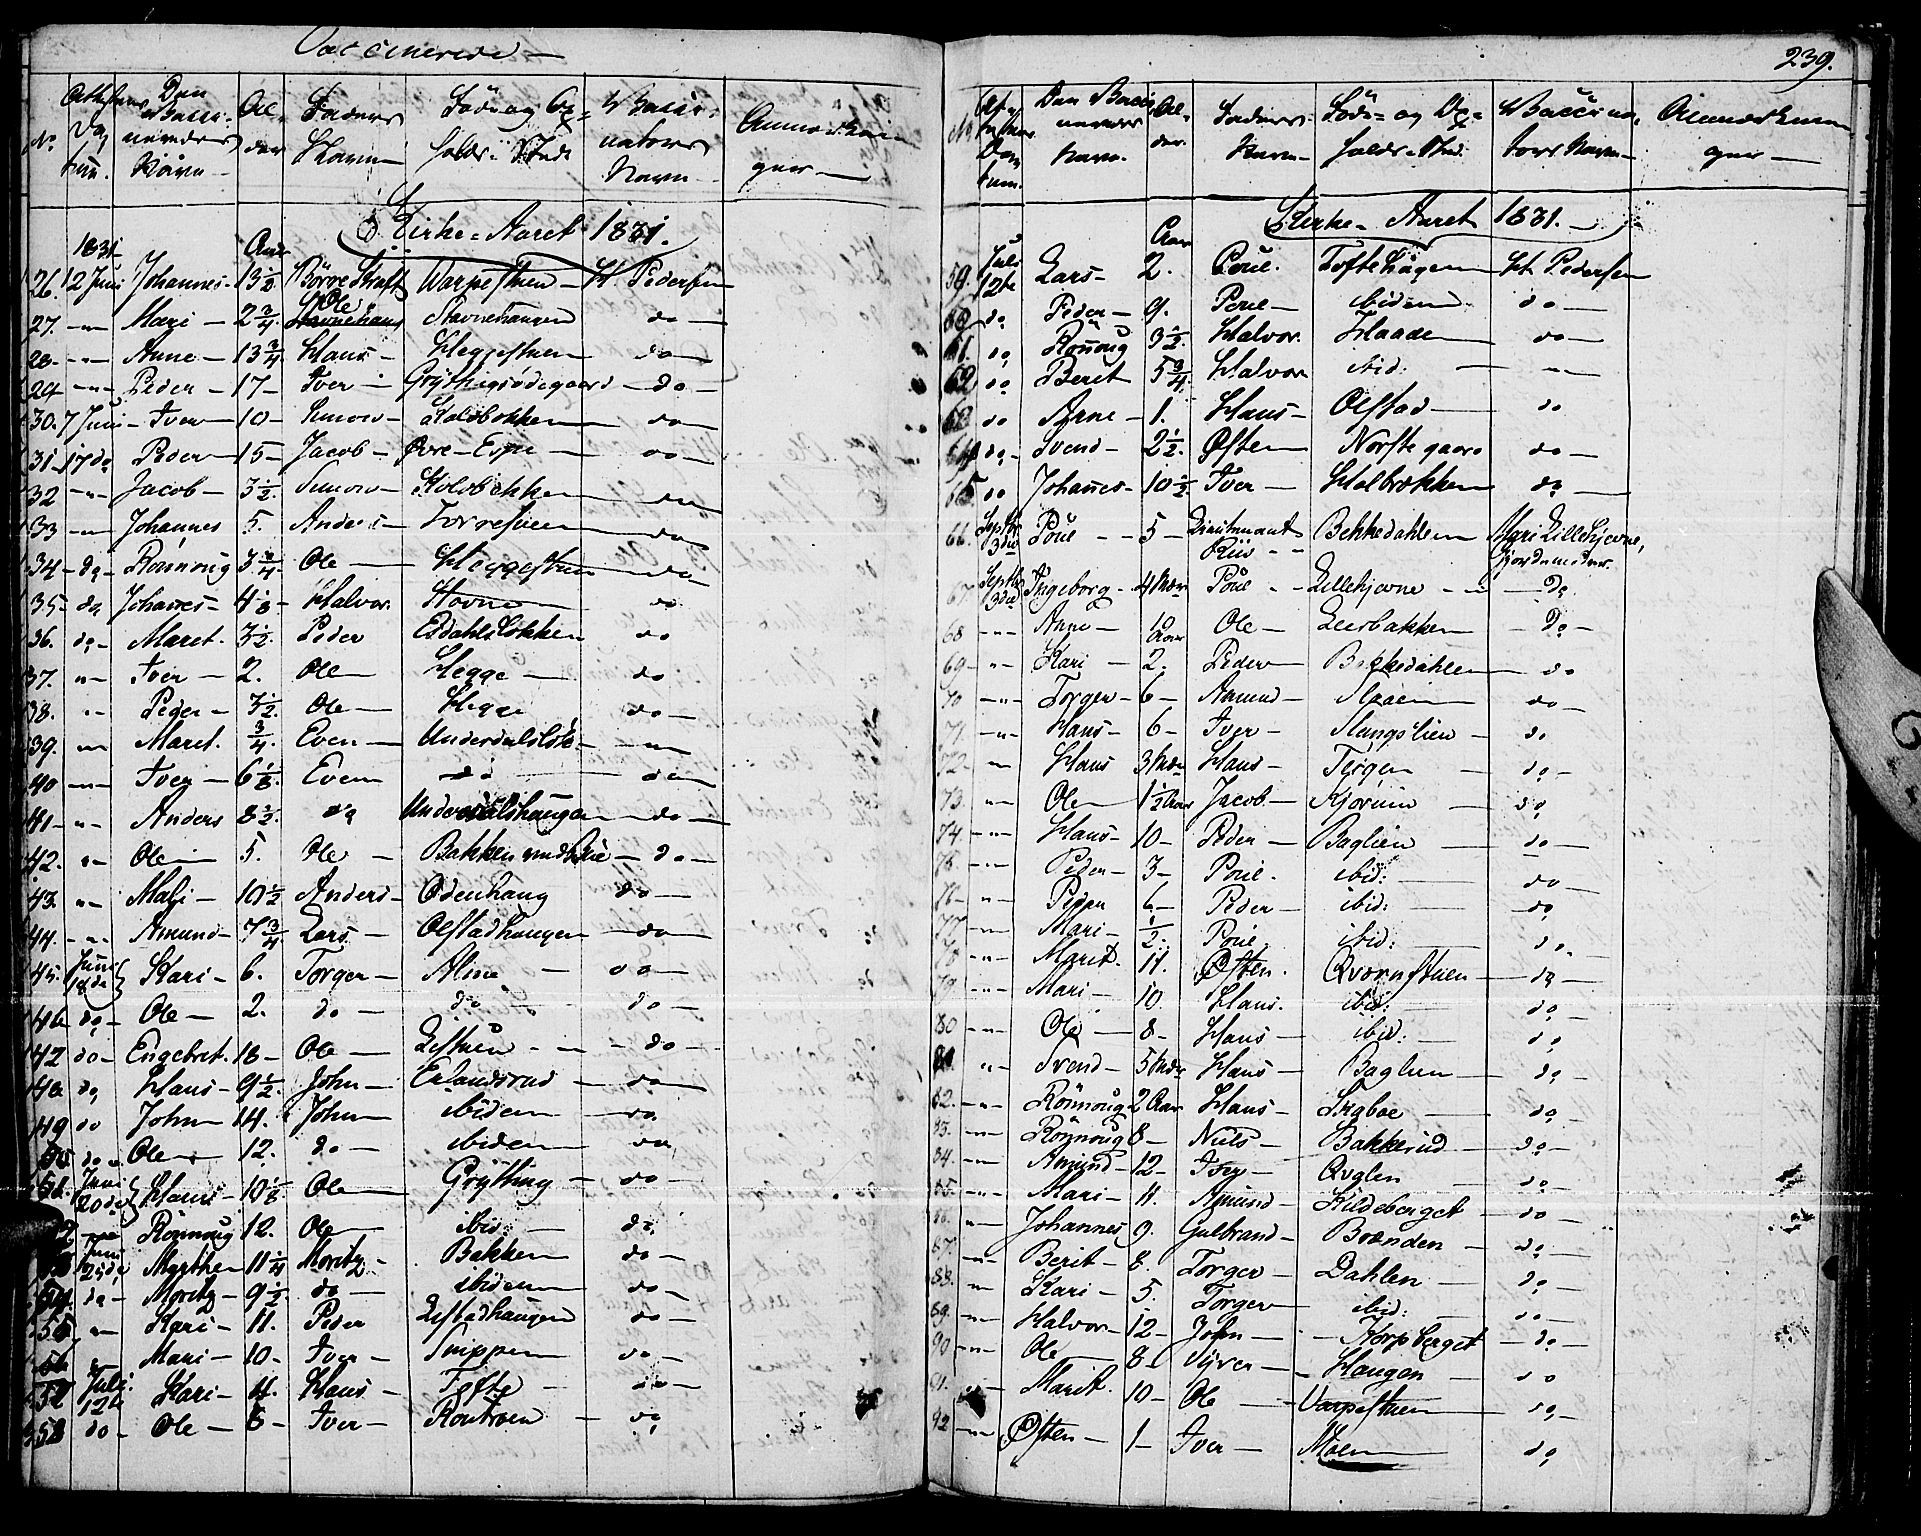 Vaccinerede
No. Attestens Datum. Den Vaccineredes Navn Alder Faders Navn Føde og Opholds-Sted Vaccinators Navn Anmærkninger
Kirke-Aaret 1831.
1831 Aar
26. 12 Juni Johannes 13 1/2 Warpestuen H. Pedersen
27. Mari 2 3/4 Ole Stavnehaugen do
28. Anne 13 3/4 Hans Heggestuen do
29. Peder 17 Iver Grythingsødegaard do
30. 7 Juni Iver 10 Simon Koldbekken do
31. 17 do Peder 15 Jacob Øvre-Espe do
32 Jacob 3 1/2 Simon Kolbekken do
33 Johannes 5. Anders do
34 do Rönnoug 3 3/4 Ole Heggestuen do
35 do Johannes 4 1/8 Halvor Hovne do
36. do Maret 3 1/2 Peder Esdahlsløkken do
37. Iver 2. Ole Hegge do
38. Peder 3 1/2 Ole Hegge do
39. Maret 3/4 Even Underdalsløk
40 Iver 6 1/2 Even do do
41 Anders 8 1/2 do Underdalshaugen do
42. Ole 5. Ole Bakken do
43. Mali 10 1/2 Anders Odenhaug do
44. Amund 7 3/4 Lars Olstadhaugen do
45. Juni 18de Kari 6. Torger Alme do
46 do Ole 2. do do do
47 do Engebret 18 Ole Listuen do
48 do Hans 9 1/2 John Erlandsrud do
49 do John 14. John ibidem do
50 do Ole 12. do ibidem do
51. Juni 20de Hans 10 1/8 Ole Grÿtting do
52 Rönnoug 12. Ole ibid: do
53 Juni Marthe 11 1/4 Moritz Bakken do
54. do Moritz 9 1/2 do ibidem do
55 Kari 11. Peder Listadhaugen do
56 Mari 10 Iver Snippen do
57 Juli 12te Kari 4. Hans Tofte do
58 do Ole 6 Iver do
239.
No Attestens Datum. Den Vaccineredes Navn. Alder. Faders Navn Føde- og Opholds-Sted. Vaccinators Navn Anmærkninger
Kirke-Aaret 1831.
Aar
59. Juli 12te Lars 2. Poul. Toftehaugen H. Pedersen
60 do Peder 9. Poul ibidem do
61. do Rönnoug 3 1/2 Halvor. Haaden do
62 do Beret 5 3/4 Halvor ibid:
63 do Anne 1. Hans Olstad do
64 do Svend 2 1/2 Østen Norstegaard do
65 do Johannes 10 1/2 Iver Holbrækken do
66. Septbr 3die Poul 5 Lieutenant Riis Bekkedahlen Mari Lillehjevne, Jordemoder.
67 Septbr 3die Ingeborg 4 Mdr Poul Lillehjevne do
68 Anne 10 Aar Ole Leerbakken do
69 Kari 2. Peder Bekkedahlen do
70 Torger 6 Amund Slaaen do
71. Hans 6 Iver Slangslien do
72. Hans 3 Mdr Hans Teigen do
73. Ole 1 1/2 Aar Jacob Kjorum do
74. Hans 10 Peder Baglien do
75 Peder 3 Poul. ibid: do
76 Peder 6 Peder ibid: do
77 Mari 1/2 Poul ibid: do
78 Marit. 11. Østen. Qværnstuen do
79 Mari 10 Hans. ibid: do
80 Ole 8 Hans ibid: do
81. Svend 5 Mdr Hans Baglien do
82. Rönnoug 2 Aar Hans Skaboe do
83. Rönnoug 8 Niels Bakkerud do
84. Amund 12 Iver do
85. Mari 11. Amund Kildeberget do
86. Johannes 9. Gulbrand Brænden do
87. Berit 8. Torger Dahlen do
88. Kari 5. Torger ibid: do
89. Halvor 12 John Korpberget do
90 Ole 8 Syver Haugen do
91. Marit. 10 Ole Varpestuen do
92 Østen 1 Iver Moen do